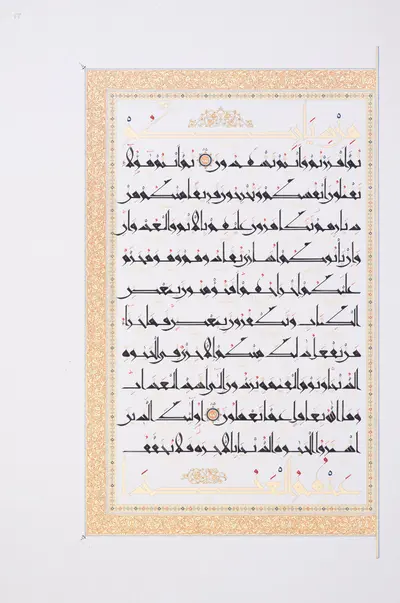 من دياركم
ثم أقررتم وأنتم تشهدون ثم أنتم هؤلاء
تقتلون أنفسكم وتخرجون فريقا منكم من
ديارهم تظاهرون عليهم بالإثم والعدوان
وإن يأتوكم أسارى تفادوهم وهو محرم
عليكم إخراجهم أفتؤمنون ببعض
الكتاب وتكفرون ببعض فما جزاء
من يفعل ذلك منكم إلا خزي في الحيوة
الدنيا ويوم القيمة يردون إلى أشد العذاب
وما الله بغافل عما تعملون أولئك الذين
اشتروا الحيوة الدنيا بالآخرة فلا يخفف
عنهم العذاب